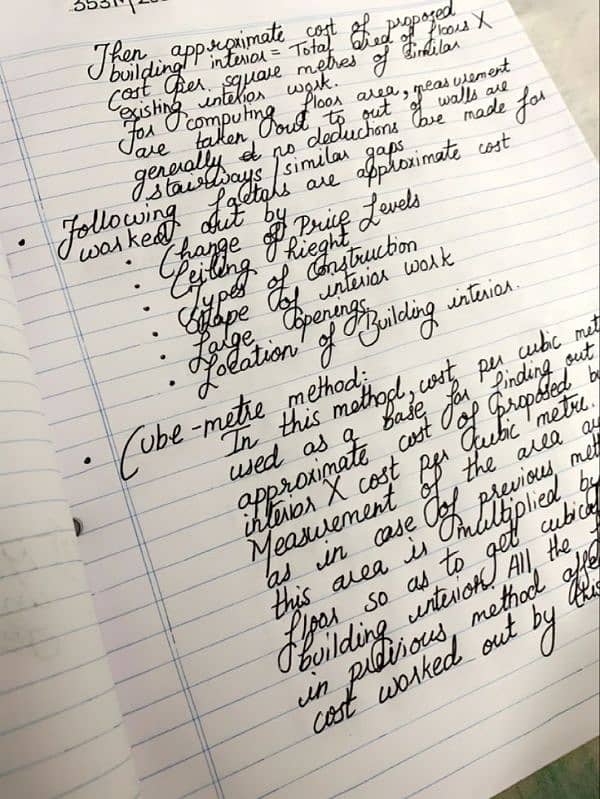 353M
Then approximate cost of proposed
building interior = Total area of floors X
Cost per square metres of similar
existing interior work.
For computing floor area, measurement
are taken out to out of walls are
generally & no deductions are made for
stairways / similar gaps
• Following factors are approximate cost
worked out by
• Change of Price Levels
• Ceiling hieght
• Types of Construction
• Shape of interior work
• Large Openings
• Location of Building interior.
• Cube-metre method:
In this method, cost per cubic met
used as a base for finding out
approximate cost of proposed b
interior X cost per cubic metre.
Measurement of the area a
as in case of previous met
this area is multiplied by
floor so as to get cubica
building interior. All the
in previous method affe
cost worked out by this